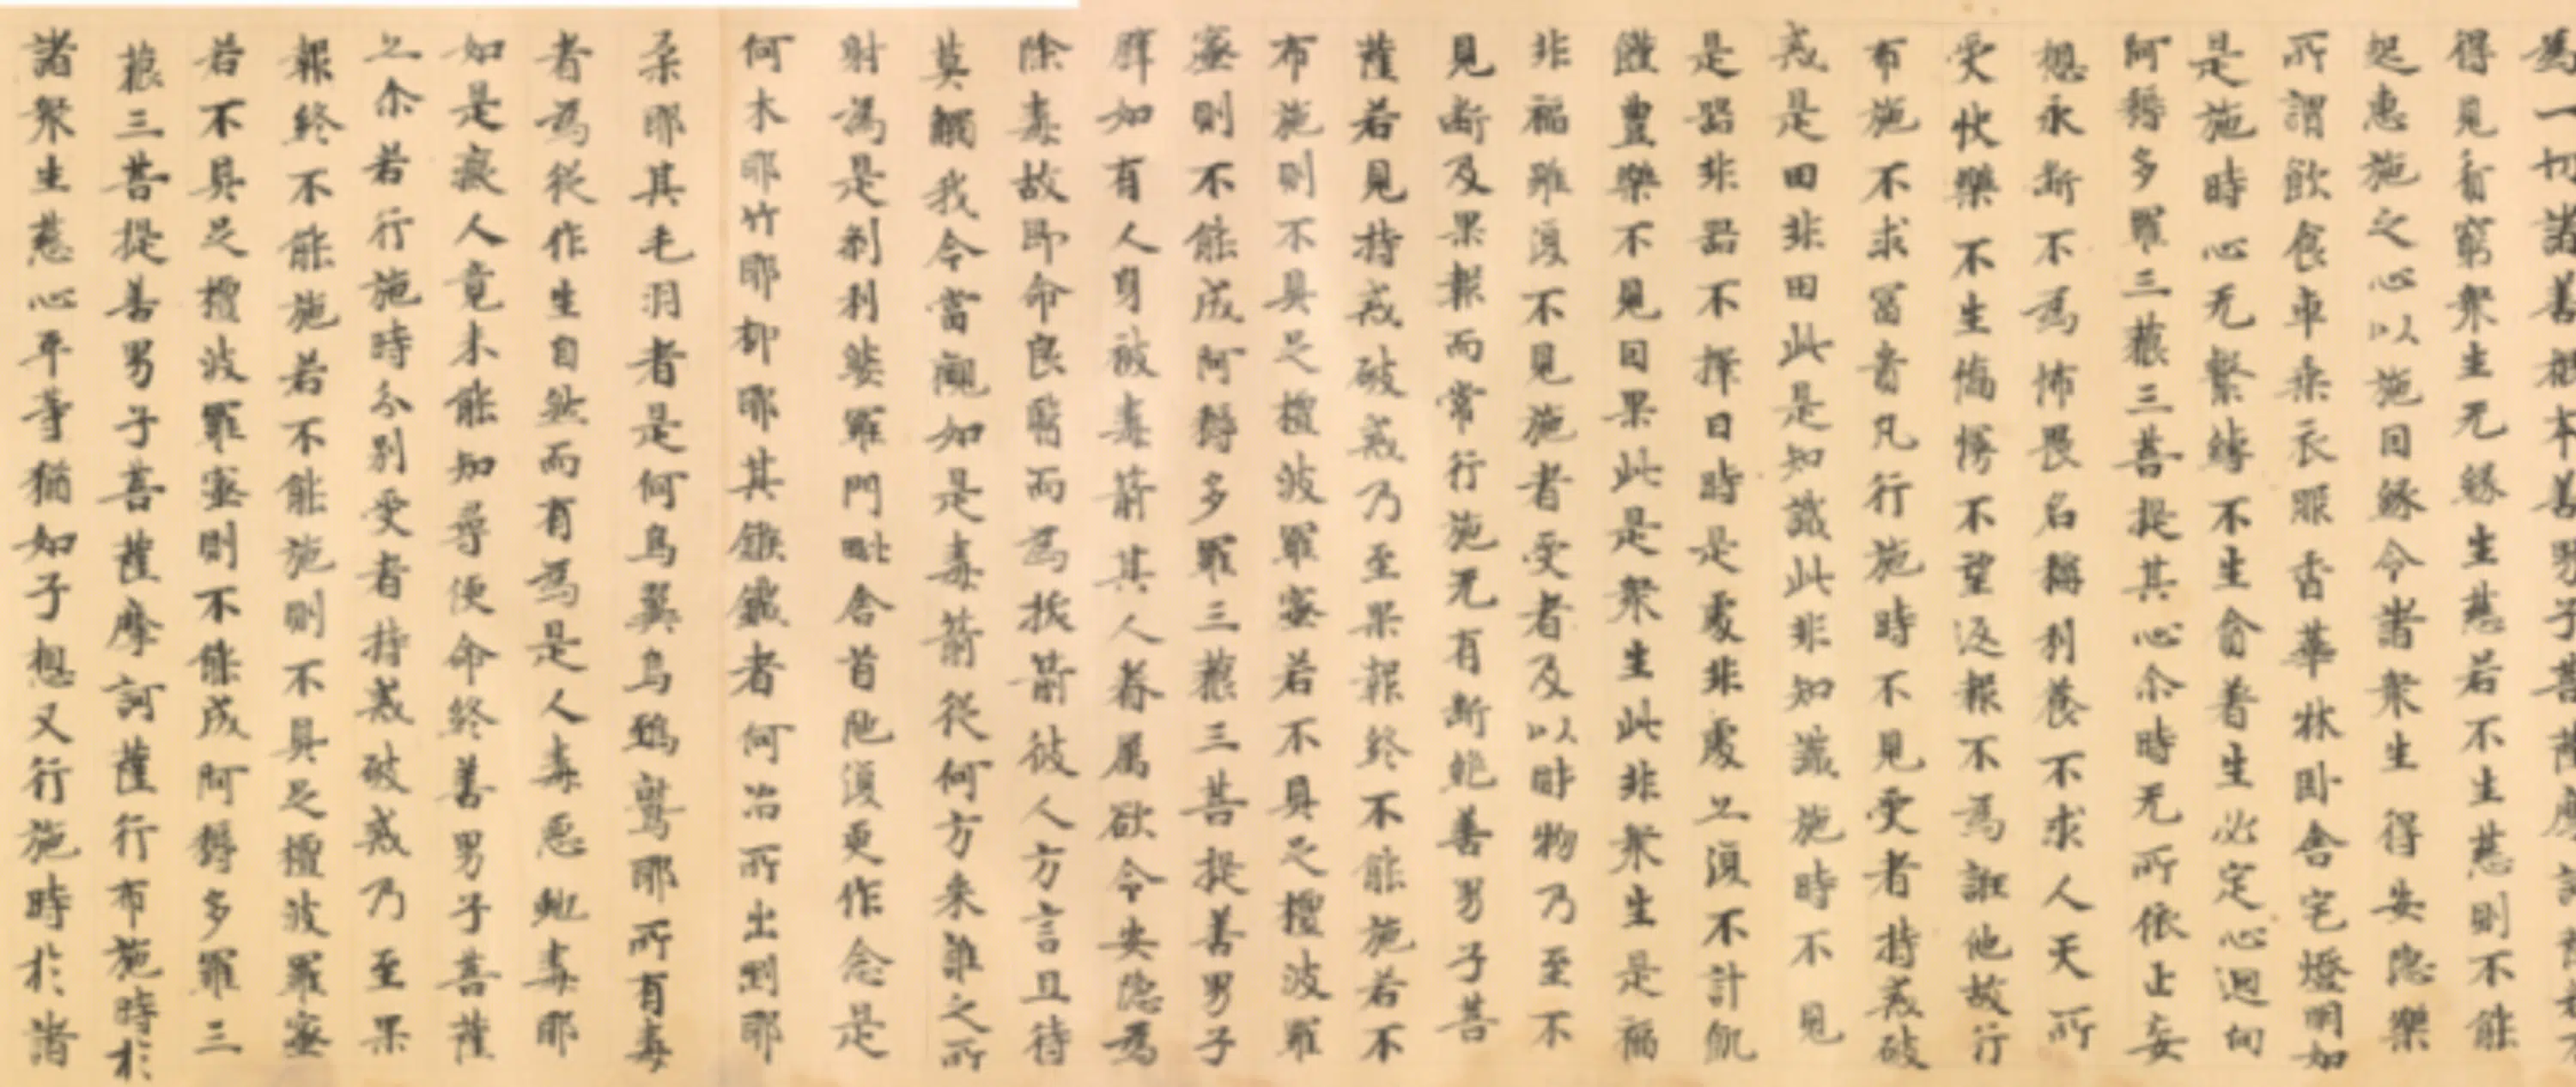 為一切諸善根本善男子菩薩摩訶薩
得見者窮眾生无緣生慈若不生慈則不能
起惠施之心以施因緣令諸眾生得安隱樂
所謂飲食車乘衣服香華牀卧舍宅燈明如
是施時心无繫縛不生貪著生必定心迴向
阿耨多羅三藐三菩提其心尒時无所依止妄
想永斷不為怖畏名稱利養不求人天所
受快樂不生憍慢不望返報不為誑他故行
布施不求富者凡行施時不見受者持戒破
戒是田非田此是知識此非知識施時不見
是器非器不擇日時是處非處亦復不計飢
饉豐樂不見因果此是眾生此非眾生是福
非福雖復不見施者受者及以財物乃至不
見斷及果報而常行施无有斷絕善男子菩
薩若見持戒破戒乃至果報終不能施若不
布施則不具足檀波羅蜜若不具足檀波羅
蜜則不能成阿耨多羅三藐三菩提善男子
辟如有人身被毒箭其人眷属欲令安隱為
除毒故即命良醫而為拔箭彼人方言且待
莫觸我今當觀如是毒箭從何方来誰之所
射為是剎利婆羅門毗舍首陁復更作念是
何木耶竹耶柳耶其鏃鐵者何冶所出剛耶
柔耶其毛羽者是何鳥翼烏鵄鷲耶所有毒
者為從作生自然而有為是人毒惡虵毒耶
如是癡人竟未能知尋便命終善男子菩薩
亦尒若行施時分別受者持戒破戒乃至果
報終不能施若不能施則不具足檀波羅蜜
若不具足檀波羅蜜則不能成阿耨多羅三
藐三菩提善男子菩薩摩訶薩行布施時於
諸眾生慈心平等猶如子想又行施時於諸